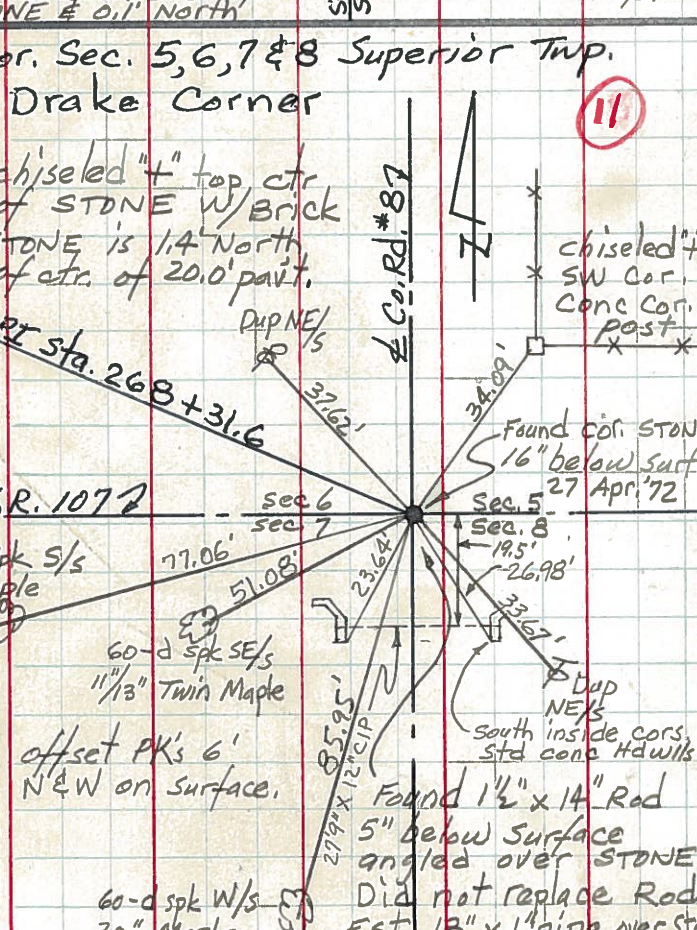 & 0.1' North
or. Sec. 5, 6, 7 & 8 Superior Twp.
Drake Corner
11
chiseled "+" top ctr
of STONE W/Brick
STONE is 1.4' North
of ctr. of 20.0' pav't.
℄ Co. Rd. #87
N
chiseled "+
SW Cor.
Conc Cor.
post
Dup NE/s
PI Sta. 268+31.6
37.62'
34.09'
Found cor. STON
16" below surf
27 Apr. '72
R. 107
Sec. 6
Sec. 7
Sec. 5
Sec. 8
pk S/s
ple
77.06'
51.08'
23.64'
19.5'
26.98'
33.67'
60-d spk SE/s
11"/13" Twin Maple
Dup
NE/s
South inside cors,
Std conc Hdwlls
85.95'
27'9" x 12" CIP
offset PK's 6'
N & W on surface.
Found 1½" x 14" Rod
5" below surface
angled over STONE
Did not replace Rod
60-d spk W/s